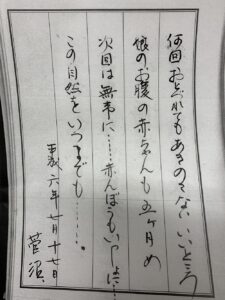 何回おとずれてもあきのこない いいところ
娘のお腹の赤ちゃんも五ヶ月め
次回は無事に……赤んぼうもいっしょに……
この自然をいつまでも……。
平成六年七月十七日
菅沼